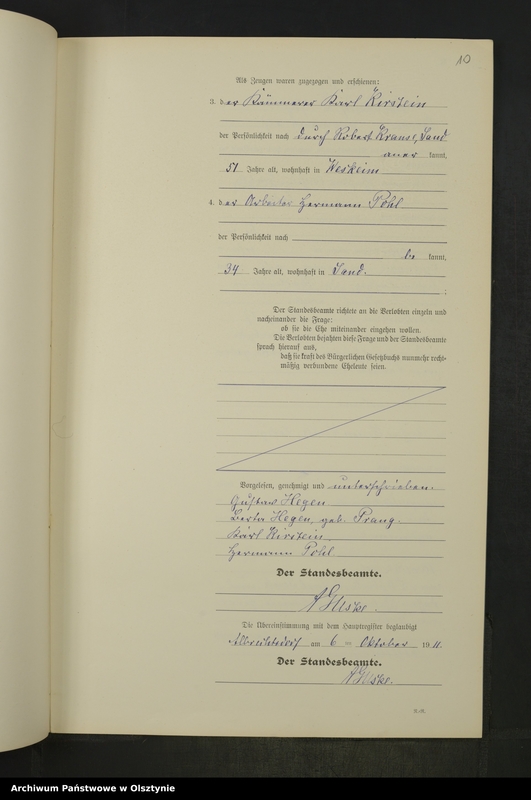 10
Als Zeugen waren zugezogen und erschienen:
3. der Kämmerer Karl Kirstein
der Persönlichkeit nach durch Robert Krause, Sand
aner kannt,
51 Jahre alt, wohnhaft in Weskeim
4. der Arbeiter Hermann Pohl
der Persönlichkeit nach
be kannt,
34 Jahre alt, wohnhaft in Sand.
;
Der Standesbeamte richtete an die Verlobten einzeln und
nacheinander die Frage:
ob sie die Ehe miteinander eingehen wollen.
Die Verlobten bejahten diese Frage und der Standesbeamte
sprach hierauf aus,
daß sie kraft des Bürgerlichen Gesetzbuchs nunmehr recht-
mäßig verbundene Eheleute seien.
Vorgelesen, genehmigt und unterschrieben.
Gustav Hegen
Berta Hegen, geb. Prang.
Karl Kirstein
Hermann Pohl
Der Standesbeamte.
Die Übereinstimmung mit dem Hauptregister beglaubigt
am 6 ten Oktober 1911.
Der Standesbeamte.
Archiwum Państwowe w Olsztynie